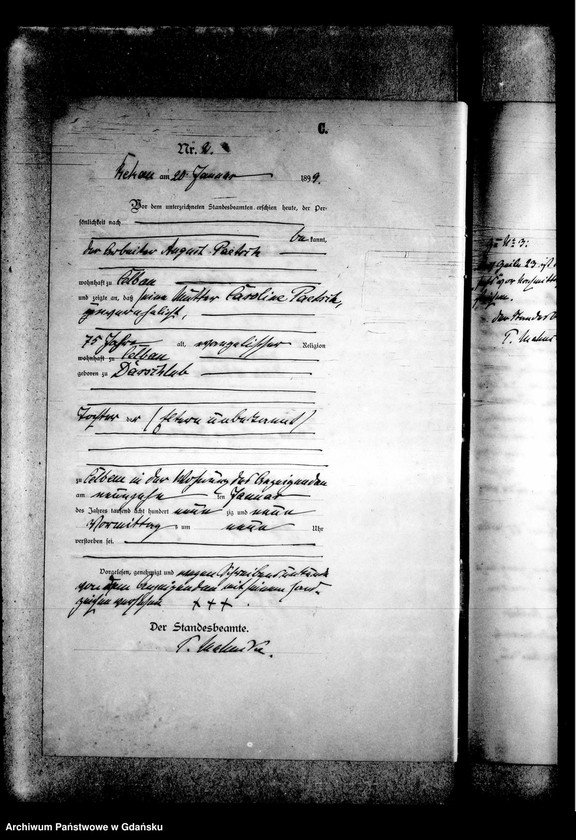 C.
Nr. 2.
am 20 Januar 1899.
Vor dem unterzeichneten Standesbeamten erschien heute, der Per-
sönlichkeit nach
be kannt,
der Arbeiter August
wohnhaft zu Celbau
und zeigte an, daß seine Mutter Caroline
unverehelicht,
75 Jahre alt, evangelischer Religion
wohnhaft zu Celbau
geboren zu Darschlub
Tochter der (Eltern unbekannt)
zu Celbau in der Wohnung des Anzeigenden
am neunzehn ten Januar
des Jahres tausend acht hundert neun zig und neun
Vormittag s um neun Uhr
verstorben sei.
Vorgelesen, genehmigt und wegen Schreibensunkunde
von dem Anzeigenden mit seinem Hand-
zeichen versehen +++.
Der Standesbeamte.
zu No 3:
Zeile 23 ist
vor
Der Standesb
Archiwum Państwowe w Gdańsku